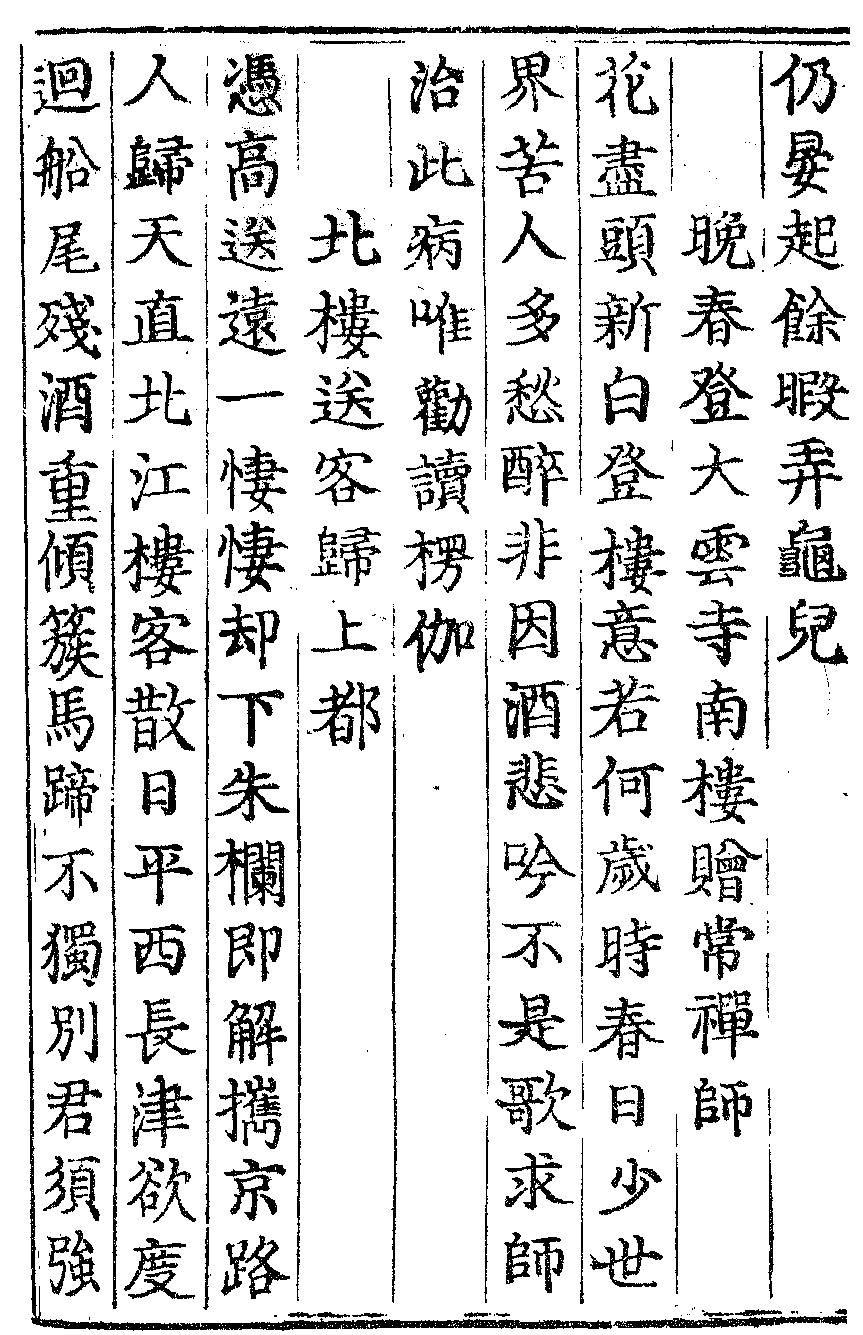 仍晏起餘暇弄龜兒
晚春登大雲寺南樓贈常禪師
花盡頭新白登樓意若何歲時春日少世
界苦人多愁醉非因酒悲吟不是歌求師
治此病唯勸讀楞伽
北樓送客歸上都
憑高送遠一悽悽却下朱欄即解攜京路
人歸天直北江樓客散日平西長津欲度
迴船尾殘酒重傾簇馬蹄不獨別君須強